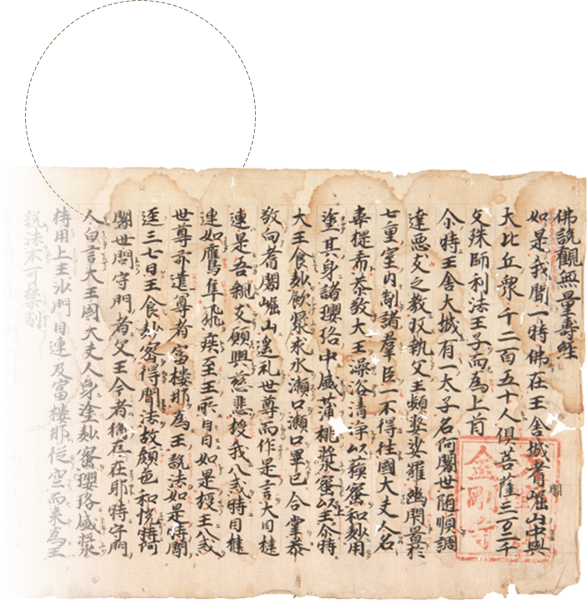 佛說觀無量壽經
如是我聞一時佛在王舍城耆闍崛山中與
大比丘衆千二百五十人俱菩薩三万二千
文殊師利法王子而為上首
尒時王舍大城有一太子名阿闍世随順調
達惡友之教収執父王頻婆娑羅幽閇置於
七重室內制諸羣臣一不得往國大夫人名
韋提希恭敬大王澡浴清浄以蘓蜜和麨用
塗其身諸瓔珞中盛蒲桃漿蜜以上王尒時
大王食麨飲漿求水漱口漱口畢已合掌恭
敬向耆闍崛山遥礼世尊而作是言大目揵
連是吾親友願興慈悲授我八戒時目揵
連如鷹隼飛疾至王所日日如是授王八戒
世尊亦遣尊者富楼那為王說法如是時間
逕三七日王食麨蜜得聞法故顔色和悅時阿
闍世問守門者父王今者猶存在耶時守門
人白言大王國大夫人身塗麨蜜瓔珞盛漿
持用上王沙門目連及富楼那従空而来為王
說法不可禁制
金剛寺